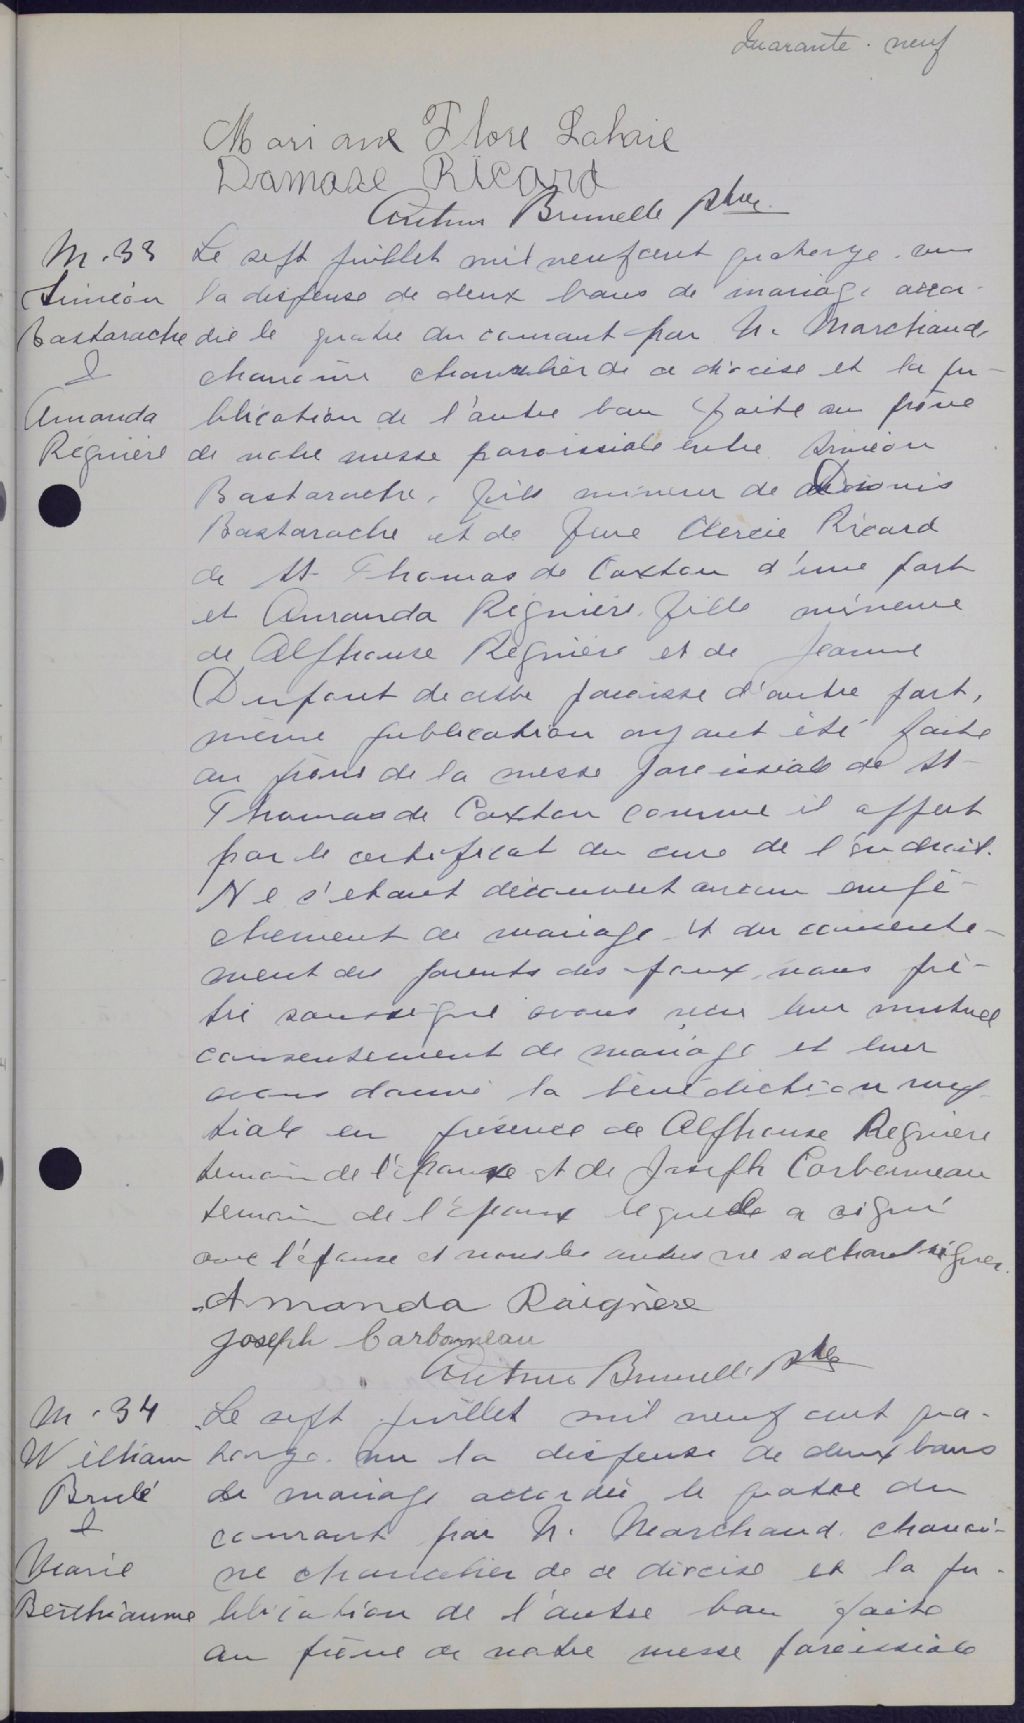 Quarante-neuf
Marianne Flore Lahaie
Damase Ricard
Arthur Brunelle ptre
M. 33
Siméon
Bastarache
&
Amanda
Régnière
Le sept juillet mil neuf cent quatorze. vu
la dispense de deux bans de mariage accor-
dée le quatre du courant par N. Marchand,
chanoine chancelier de ce diocèse et la pu-
blication de l'autre ban faite au prône
de notre messe paroissiale entre Siméon
Bastarache, fils mineur de Dionis
Bastarache et de feue Clercie Ricard
de St Thomas de Caxton d'une part
et Amanda Régnière, fille mineure
de Alphonse Régnière et de Jeanne
Dufaut de cette paroisse d'autre part,
même publication ayant été faite
au prône de la messe paroissiale de St-
Thomas de Caxton comme il appert
par le certificat du curé de l'endroit.
Ne s'étant découvert aucun empê-
chement de mariage et du consente-
ment des parents des époux, nous prê-
tre soussigné avons reçu leur mutuel
consentement de mariage et leur
avons donné la bénédiction nup-
tiale en présence de Alphonse Régnière
témoin de l'épouse et de Joseph Carbonneau
témoin de l'époux lequel a signé
avec l'épouse et nous les autres ne sachant signer.
Amanda Raignère
Joseph Carbonneau
Arthur Brunelle ptre
M. 34
William
Brulé
&
Marie
Berthiaume
Le sept juillet mil neuf cent qua-
torze. vu la dispense de deux bans
de mariage accordée le quatre du
courant par N. Marchand, chanoi-
ne chancelier de ce diocèse et la pu-
blication de l'autre ban faite
au prône de notre messe paroissiale